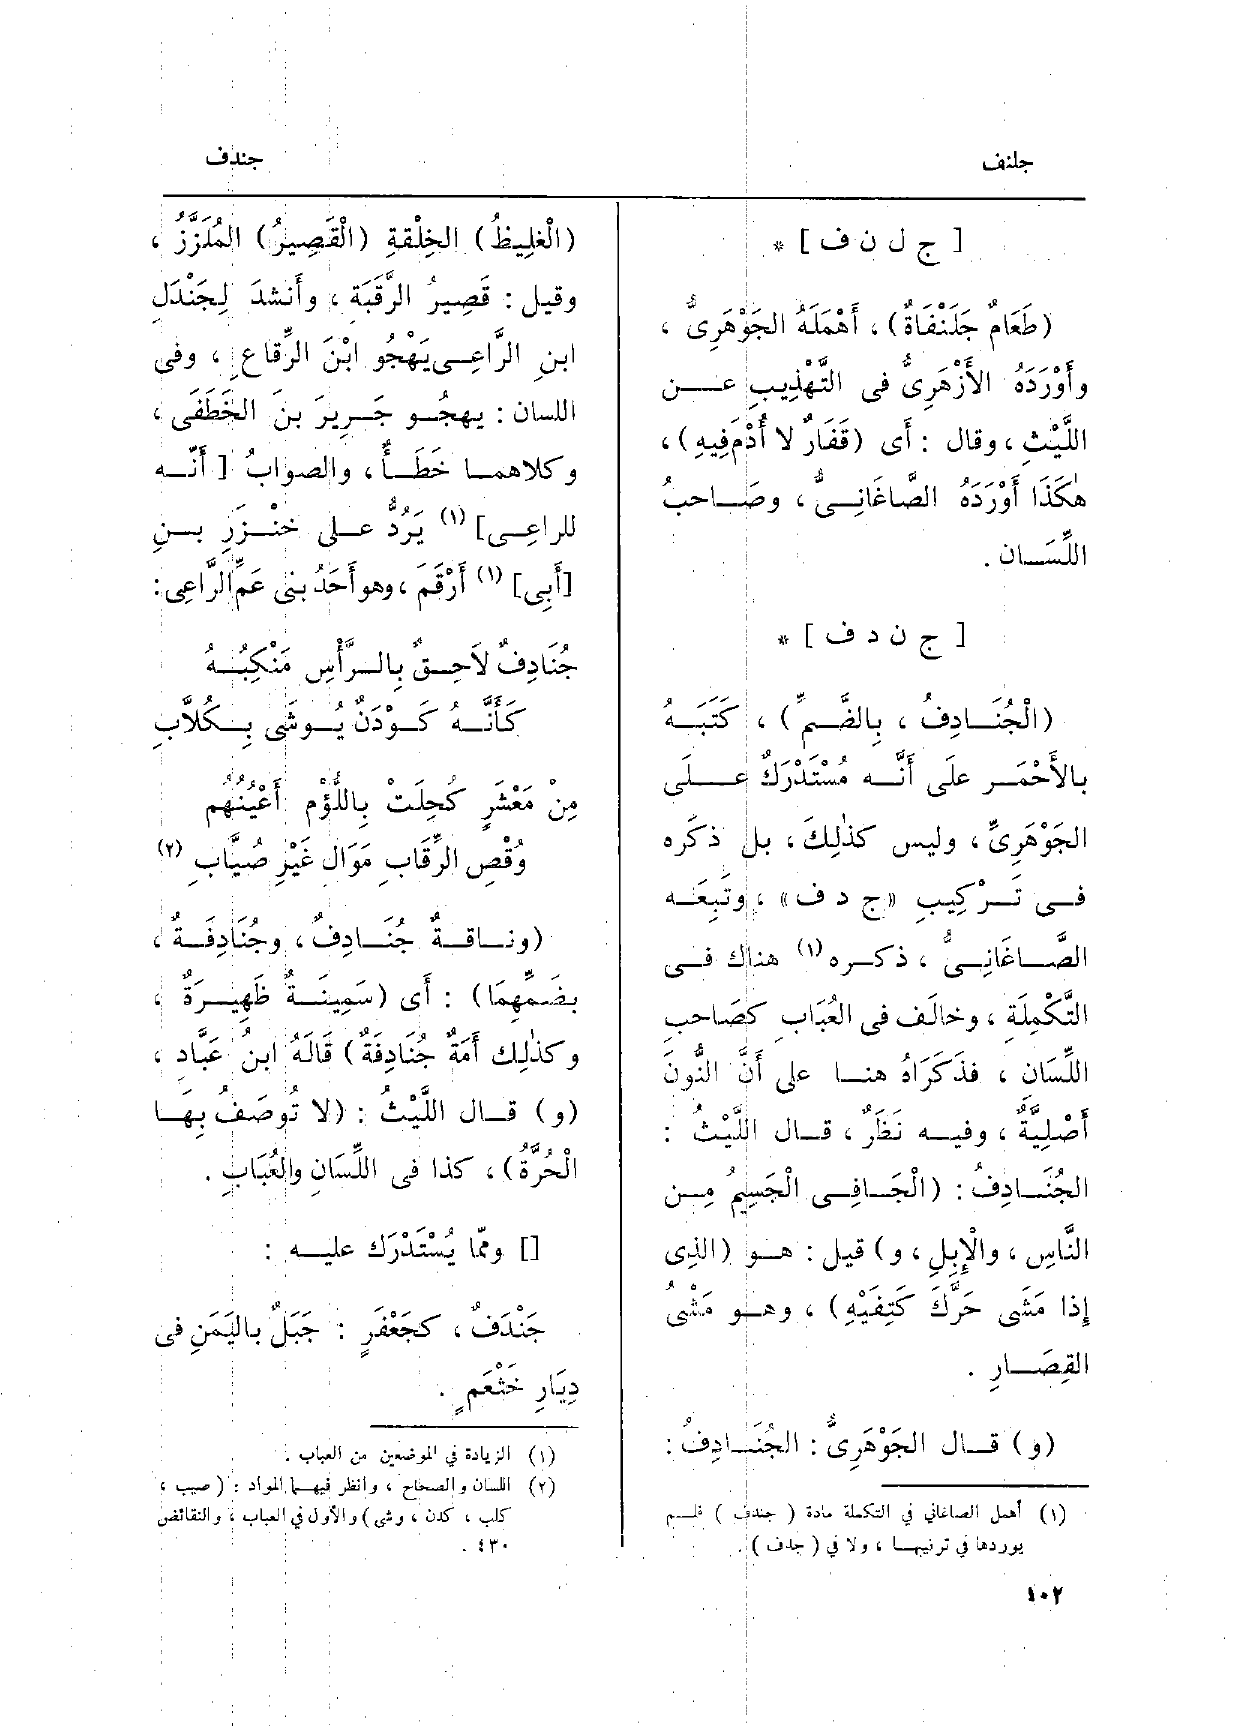 جلنف
جندف
[ ج ل ن ف ] *
(طَعَامٌ جَلَنْفَاةٌ) ، أَهْمَلَهُ الجَوْهَرِىُّ ،
وأَوْرَدَهُ الأَزْهَرِىُّ فى التَّهْذِيبِ عـن
اللَّيْثِ ، وقال : أَى (قَفَارٌ لا أُدْمَ فِيهِ) ،
هٰكَذَا أَوْرَدَهُ الصَّاغَانِـىُّ ، وصَـاحبُ
اللِّسَـان .
[ ج ن د ف ] *
(الْجُنَـادِفُ ، بِالضَّـمِّ) ، كَتَبَـهُ
بالأَحْمَـرِ علَى أَنَّـه مُسْتَدْرَكٌ عَـلَى
الجَوْهَرِىِّ ، وليس كذٰلِكَ ، بل ذكَره
فـى تَـرْكِيبِ «ج د ف» ، وتَبِعَـه
الصَّـاغَانِـىُّ ، ذكـره (١) هناك فـى
التَّكْمِلَةِ ، وخالَف فى العُبَابِ كصَاحبِ
اللِّسَانِ ، فذَكَرَاهُ هنـا على أَنَّ النُّونَ
أَصْلِيَّةٌ ، وفيـه نَظَرٌ ، قـال اللَّيْثُ :
الجُنَـادِفُ : (الْجَـافِـى الْجَسِيمُ مِـن
النَّاسِ ، والْإِبِلِ ، و) قيل : هـو (الذِى
إِذا مَشَى حَرَّكَ كَتِفَيْهِ) ، وهـو مَشْىُ
القِصَـارِ .
(و) قـال الجَوْهَرِىُّ : الجُنَـادِفُ :
(١) أهمل الصاغاني في التكملة مادة ( جندف ) فلـم
يوردها في ترتيبهـا ، ولا في ( جدف ) .
(الْغَلِيظُ) الخِلْقةِ (الْقَصِيرُ) المُلَزَّزُ ،
وقيل : قَصِيرُ الرَّقَبَةِ ، وأَنشدَ لِجَنْدَلِ
ابنِ الرَّاعِـى يَهْجُو ابْنَ الرِّقاعِ ، وفى
اللسان : يهجُـو جَـرِيرَ بنَ الخَطَفَى ،
وكلاهمـا خَطَـأٌ ، والصوابُ [ أَنَّـه
للراعِـى] (١) يَرُدُّ علـى خنْـزَرِ بـنِ
[أَبِى] (١) أَرْقَمَ ، وهو أَحَدُ بنى عَمِّ الرَّاعِى :
جُنَادِفٌ لَاحِـقٌ بِالـرَّأْسِ مَنْكِبُـهُ
كَأَنَّـهُ كَـوْدَنٌ يُـوشَى بِـكُلَّابِ
مِنْ مَعْشَرٍ كُحِلَتْ بِاللُّؤْمِ أَعْيُنُهُم
وُقْصِ الرِّقَابِ مَوَالٍ غَيْرِ صُيَّابِ (٢)
(ونـاقـةٌ جُنَـادِفٌ ، وجُنَادِفَـةٌ ،
بضَـمِّهِمَا) : أَى (سَمِينَـةٌ ظَهِيـرَةٌ ،
وكذٰلِك أَمَةٌ جُنَادِفَةٌ) قَالَهُ ابنُ عَبَّادٍ ،
(و) قـال اللَّيْثُ : (لا تُوصَفُ بِهَـا
الْحُرَّةُ) ، كذا فى اللِّسَانِ والعُبَابِ .
[] وممّا يُسْتَدْرَك عليـه :
جَنْدَفٌ ، كجَعْفَرٍ : جَبَلٌ باليَمَنِ فى
دِيَارِ خَثْعَمٍ .
(١) الزيادة في الموضعين من العباب .
(٢) اللسان والصحاح ، وانظر فيهـا المواد : ( صيب ،
كلب ، كدن ، وشى ) والأول في العباب ، والنقائض
٤٣٠ .
١٠٢